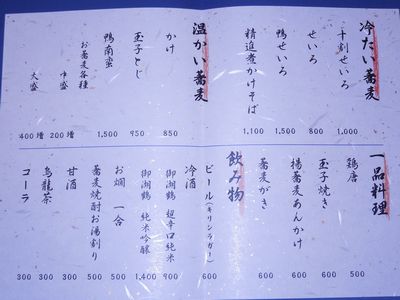 冷たい蕎麦
十割せいろ 1,000
せいろ 800
鴨せいろ 1,500
精進煮かけそば 1,100
温かい蕎麦
かけ 850
玉子とじ 950
鴨南蛮 1,500
お蕎麦各種
中盛 200 増
大盛 400 増
一品料理
鶏唐 500
玉子焼き 600
揚蕎麦あんかけ 600
蕎麦がき 600
飲み物
ビール(キリンラガー) 600
冷酒
御湖鶴 超辛口純米 900
御湖鶴 純米吟醸 1,400
お燗 一合 500
蕎麦焼酎お湯割り 500
甘酒 300
烏龍茶 300
コーラ 300